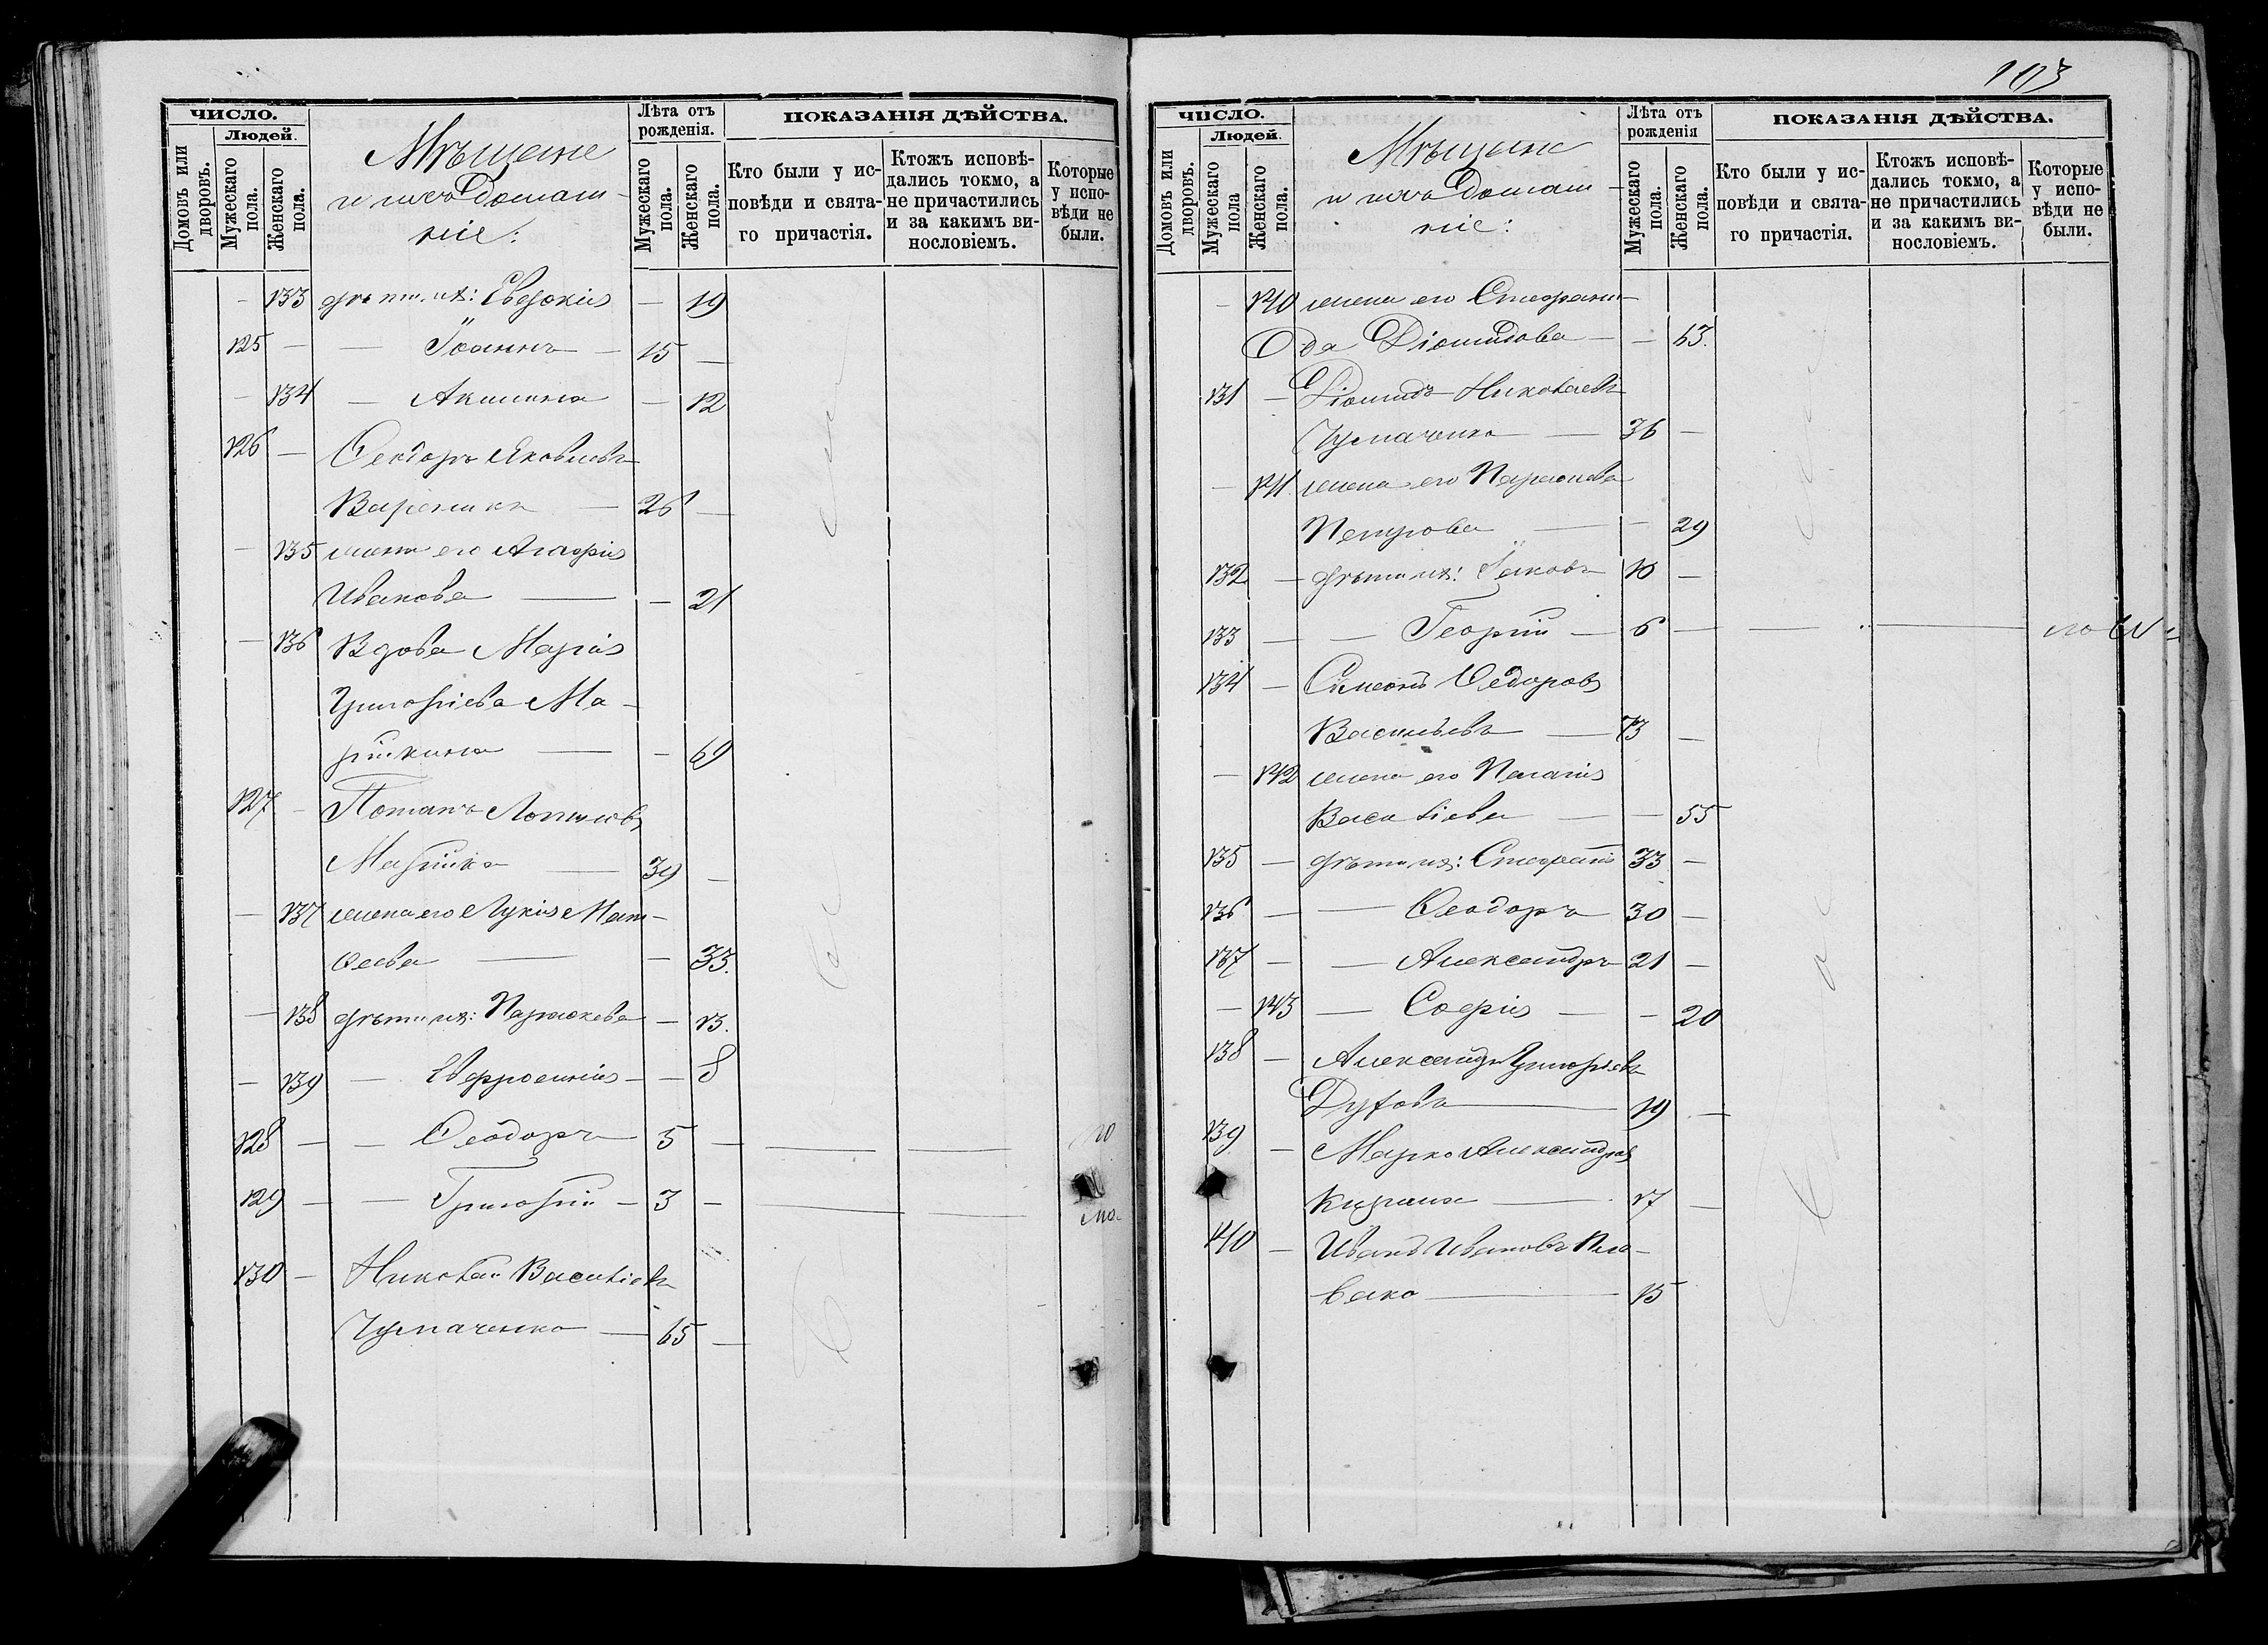 ЧИСЛО.
Домовъ или дворовъ.
Людей.
Мужескаго пола.
Женскаго пола.
Мѣщане
и ихъ домаш-
ніе:
Лѣта отъ рожденія.
Мужескаго пола.
Женскаго пола.
ПОКАЗАНІЯ ДѢЙСТВА.
Кто были у ис-
повѣди и свята-
го причастія.
Ктожъ исповѣ-
дались токмо, а
не причастились
и за какимъ ви-
нословіемъ.
Которые
у испо-
вѣди не
были.
— 133 дѣти ихъ: Евдокія — 19
125 — — Іоаннъ — 15 —
— 134 — Акилина — 12
126 — Ѳеодоръ Яковлевъ
Вареника — 26 —
— 135 жена его Агафія
Иванова — — 21
— 136 Вдова Марія
Григоріева Ма-
рішкина — — 69
127 — Потапъ
Марішка — 39 —
— 137 жена его Лукія Мат-
ѳеева — — 33.
— 138 дѣти ихъ: Параскева — 13.
— 139 — Евфросинія — — 8
128 — — Ѳеодоръ 5 — — —
129 — — Григорій — 3 — — — мо
130 — Николай Василіевъ
Чумаченко — 65 —
103
ЧИСЛО.
Домовъ или дворовъ.
Людей.
Мужескаго пола
Женскаго пола.
Мѣщане
и ихъ домаш-
ніе:
Лѣта отъ рожденія
Мужескаго пола.
Женскаго пола.
ПОКАЗАНІЯ ДѢЙСТВА.
Кто были у ис-
повѣди и свята-
го причастія.
Ктожъ исповѣ-
дались токмо, а
не причастились
и за какимъ ви-
нословіемъ.
Которые
у испо-
вѣди не
были.
— 140 жена его Стефани-
да Діомидова — — 63.
131 — Діомидъ Николаевъ
Чумаченко — 36 —
— 141 жена его Параскева
Петрова — — 29
132 — дѣти ихъ: Іаковъ 10 —
133 — — Георгій — 6 — — —
134 — Симеонъ Ѳедоровъ
Васильевъ — 73 —
— 142 жена его Пелагія
Василіева — — 55
135 — дѣти ихъ: Стефанъ 33 —
136 — — Ѳеодоръ 30 —
137 — — Александръ 21 —
— 143 — Софія — — 20
138 — Александръ Григоріевъ
Духовъ — 19 —
139 — Марко Александровъ
— 17 —
140 — Иванъ Ивановъ Пле-
вако — 15